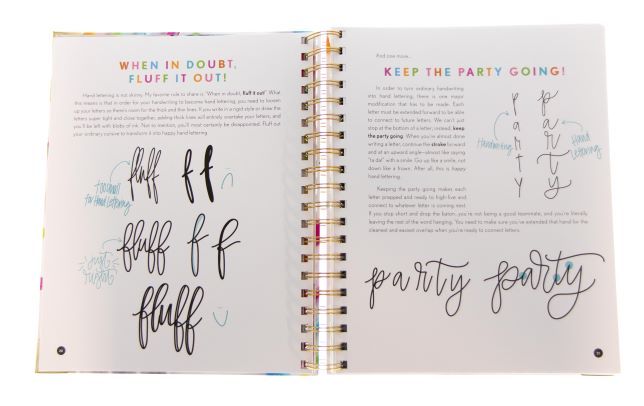 WHEN IN DOUBT,
FLUFF IT OUT!
Hand lettering is not skinny. My favorite rule to share is "When in doubt, fluff it out!" What
this means is that in order for your handwriting to become hand lettering, you need to loosen
up your letters so there's room for the thick and thin lines. If you write in a rigid style or draw the
letters super tight and close together, adding thick lines will entirely overtake your letters, and
you'll be left with blobs of ink. Not to mention, you'll most certainly be disappointed. Fluff out
your ordinary cursive to transform it into happy hand lettering.
fluff f f
too small
for Hand Lettering
fluff f f
just
right
fluff
And one more...
KEEP THE PARTY GOING!
In order to turn ordinary handwriting
into hand lettering, there is one major
modification that has to be made. Each
letter must be extended forward to be able
to connect to future letters. We can't just
stop at the bottom of a letter; instead, keep
the party going. When you're almost done
writing a letter, continue the stroke forward
and at an upward angle—almost like saying
"ta da!" with a smile. Go up like a smile, not
down like a frown. After all, this is happy
hand lettering.
p a r t y
Handwriting
p a r t y
Hand
lettering
Keeping the party going makes each
letter prepped and ready to high-five and
connect to whatever letter is coming next.
If you stop short and drop the baton, you're not being a good teammate, and you're literally
leaving the rest of the word hanging. You need to make sure you've extended that hand for the
cleanest and easiest overlap when you're ready to connect letters.
party party